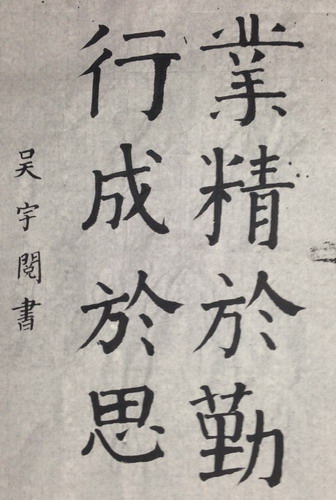 業精於勤
行成於思
吴宇閲書